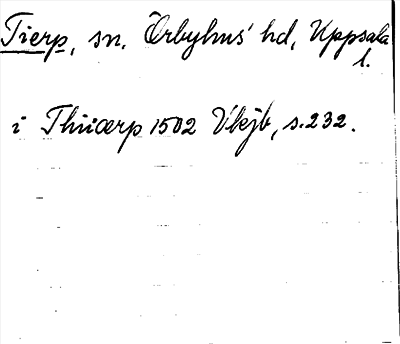 Tierp, sn. Örbyhus' hd, Uppsala
l.
i Thiærp 1502 Vkjb, s. 232.